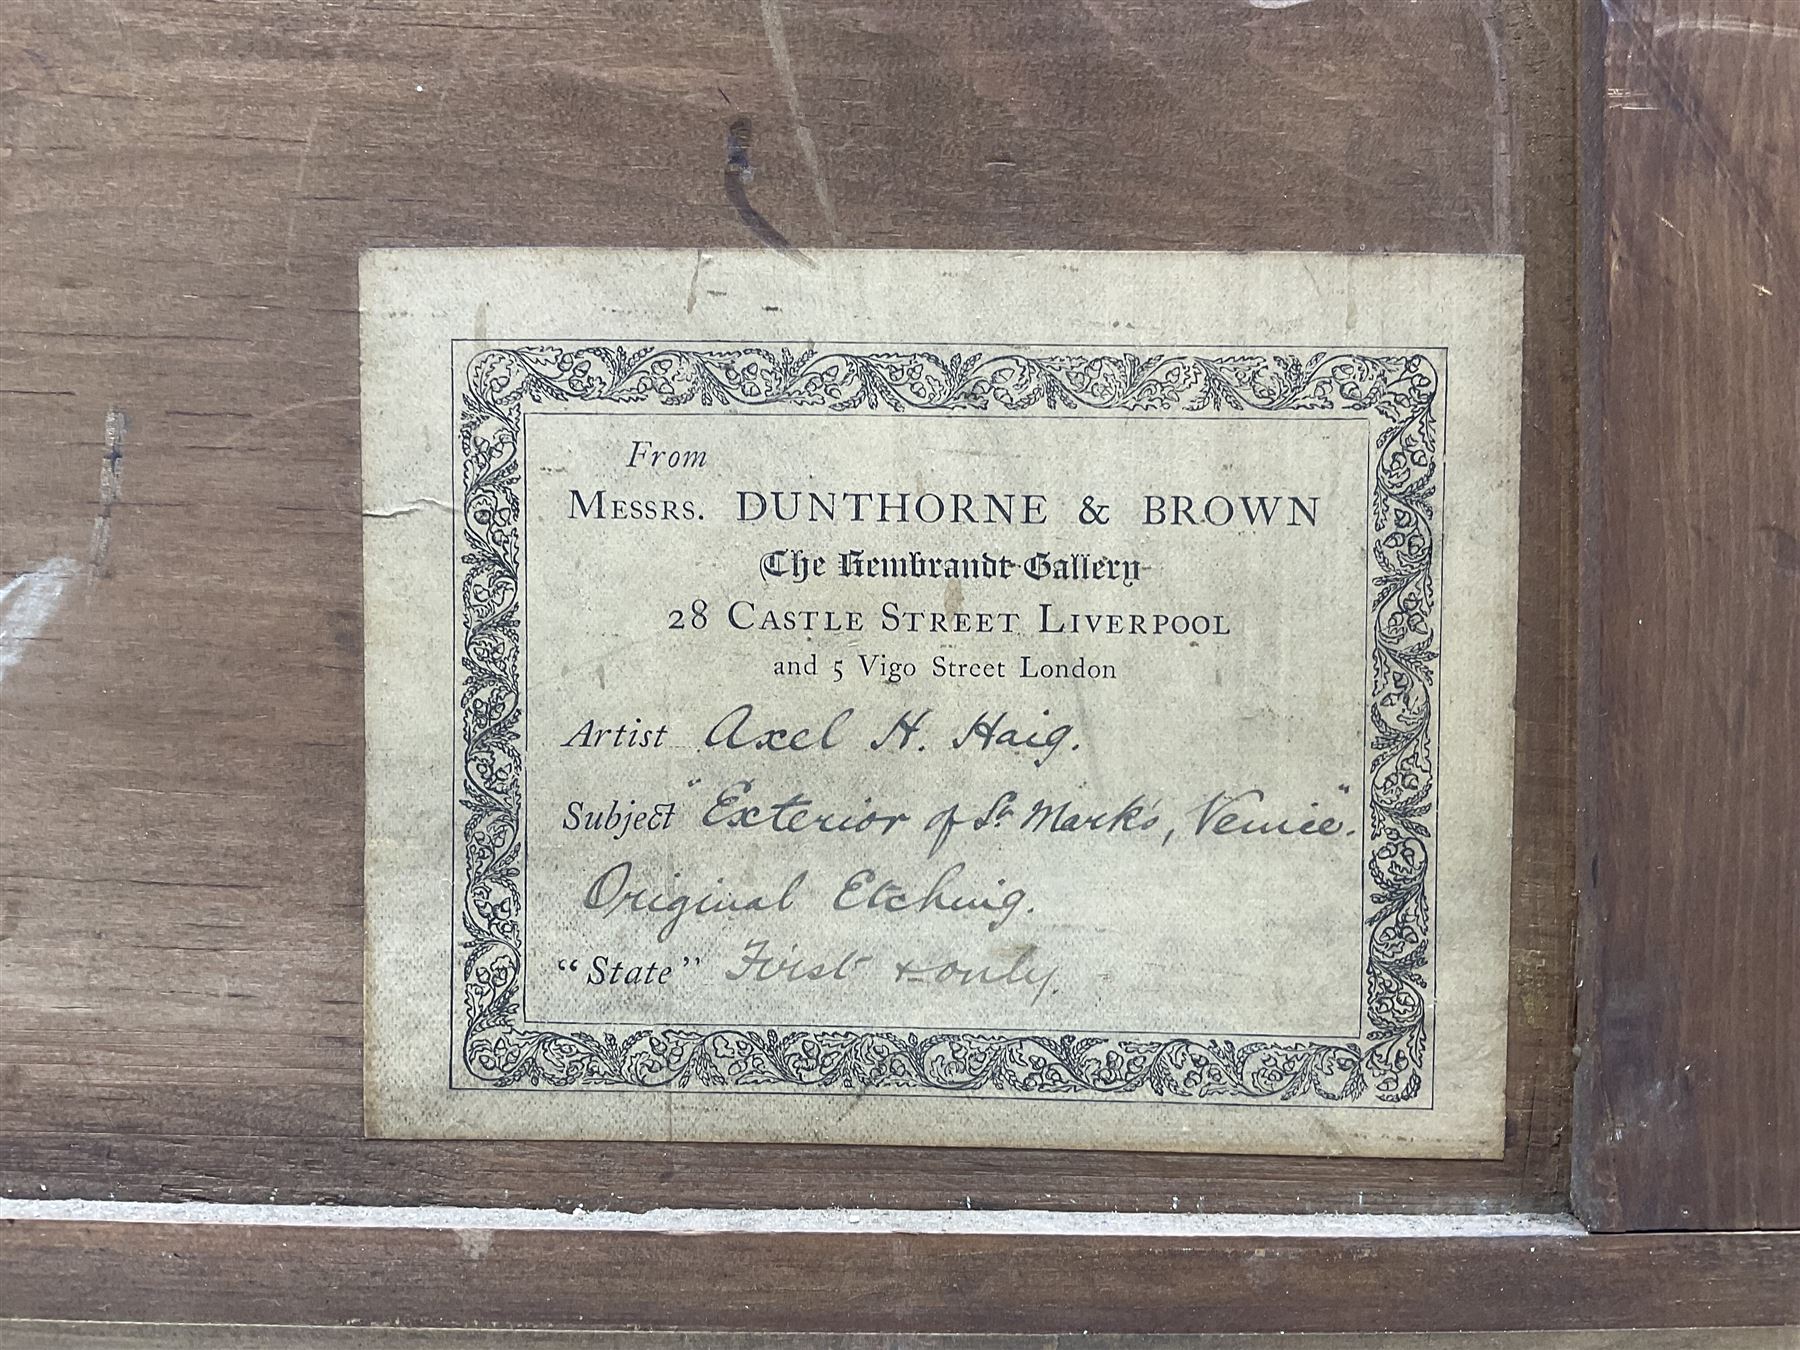 From
MESSRS. DUNTHORNE & BROWN
The Rembrandt Gallery
28 CASTLE STREET LIVERPOOL
and 5 Vigo Street London
Artist Axel H. Haig.
Subject "Exterior of St Mark's, Venice".
Original Etching.
"State" First & only.